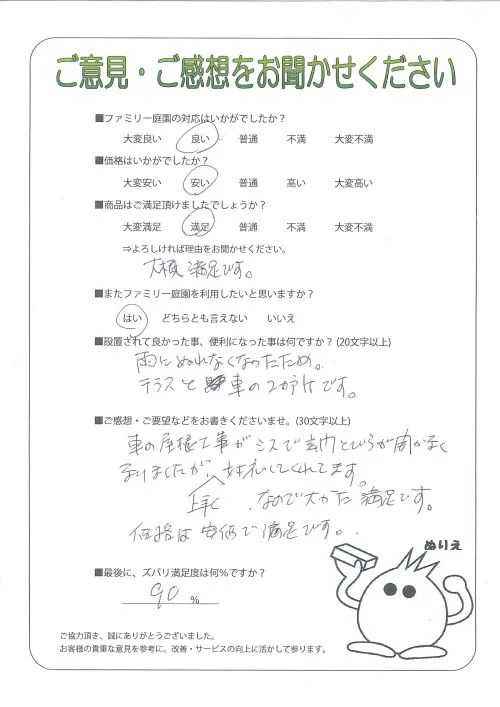 ご意見・ご感想をお聞かせください
■ファミリー庭園の対応はいかがでしたか？
大変良い 良い 普通 不満 大変不満
■価格はいかがでしたか？
大変安い 安い 普通 高い 大変高い
■商品はご満足頂けましたでしょうか？
大変満足 満足 普通 不満 大変不満
⇒よろしければ理由をお聞かせください。
大模 満足です。
■またファミリー庭園を利用したいと思いますか？
はい どちらとも言えない いいえ
■設置されて良かった事、便利になった事は何ですか？(20文字以上)
雨にぬれなくなったため。
テラスと 車の2か所です。
■ご感想・ご要望などをお書きくださいませ。(30文字以上)
車の屋根工事がミスで玄関とびらが開かなく
なりましたが、対応してくれてます。
上手く なので大かた満足です。
価格は安価で満足です。
ぬりえ
■最後に、ズバリ満足度は何％ですか？
90 %
ご協力頂き、誠にありがとうございました。
お客様の貴重な意見を参考に、改善・サービスの向上に活かして参ります。